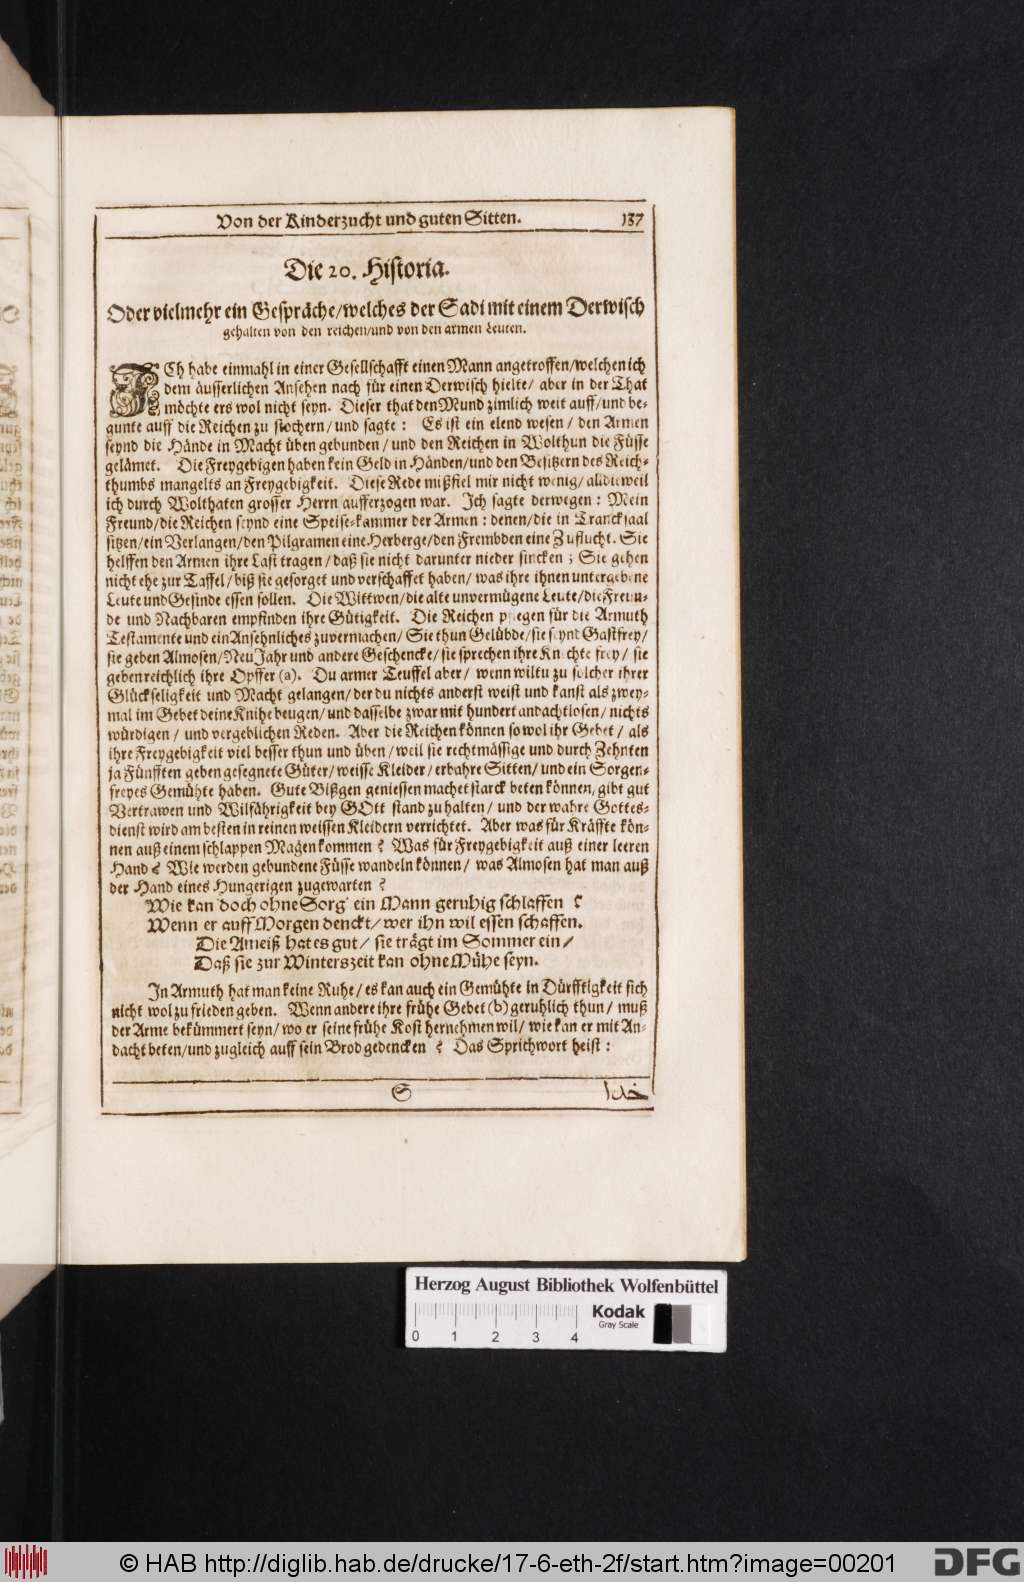 Von der Kinderzucht und guten Sitten. 137
Die 20. Historia.
Oder vielmehr ein Gespräche/welches der Sadi mit einem Derwisch
gehalten von den reichen/und von den armen Leuten.
ICh habe einmahl in einer Gesellschafft einen Mann angetroffen/welchen ich
dem äusserlichen Ansehen nach für einen Derwisch hielte/ aber in der That
möchte ers wol nicht seyn. Dieser that den Mund zimlich weit auff/und be-
gunte auff die Reichen zu stochern/und sagte: Es ist ein elend wesen/ den Armen
seynd die Hände in Macht üben gebunden/ und den Reichen in Wolthun die Füsse
gelämet. Die Freygebigen haben kein Geld in Händen/und den Besitzern des Reich-
thumbs mangelts an Freygebigkeit. Diese Rede mißfiel mir nicht wenig/ alldieweil
ich durch Wolthaten grosser Herrn aufferzogen war. Ich sagte derwegen: Mein
Freund/die Reichen seynd eine Speise-kammer der Armen: denen/die in Trancksaal
sitzen/ein Verlangen/den Pilgramen eine Herberge/den Frembden eine Zuflucht. Sie
helffen den Armen ihre Last tragen/ daß sie nicht darunter nieder sincken; Sie gehen
nicht ehe zur Taffel/biß sie gesorget und verschaffet haben/ was ihre ihnen untergebene
Leute und Gesinde essen sollen. Die Wittwen/die alte unvermügene Leute/die Freun-
de und Nachbaren empfinden ihre Gütigkeit. Die Reichen pflegen für die Armuth
Testamente und ein Ansehnliches zuvermachen/ Sie thun Gelübde/sie seynd Gastfrey/
sie geben Almosen/Neu Jahr und andere Geschencke/sie sprechen ihre Knechte frey/ sie
geben reichlich ihre Opffer (a). Du armer Teuffel aber/ wenn wiltu zu solcher ihrer
Glückseligkeit und Macht gelangen/der du nichts anderst weist und kanst als zwey-
mal im Gebet deine Knihe beugen/und dasselbe zwar mit hundert andachtlosen/ nichts
würdigen/ und vergeblichen Reden. Aber die Reichen können so wol ihr Gebet/ als
ihre Freygebigkeit viel besser thun und üben/weil sie rechtmässige und durch Zehnten
ja Fünfften geben gesegnete Güter/weisse Kleider/erbahre Sitten/und ein Sorgen-
freyes Gemühte haben. Gute Bißgen geniessen machet starck beten können/gibt gut
Vertrawen und Wilfährigkeit bey GOtt stand zu halten/ und der wahre Gottes-
dienst wird am besten in reinen weissen Kleidern verrichtet. Aber was für Kräffte kön-
nen auß einem schlappen Magen kommen? Was für Freygebigkeit auß einer leeren
Hand? Wie werden gebundene Füsse wandeln können/ was Almosen hat man auß
der Hand eines Hungerigen zugewarten?
Wie kan doch ohne Sorg' ein Mann geruhig schlaffen?
Wenn er auff Morgen denckt/wer ihn wil essen schaffen.
Die Ameiß hat es gut/ sie trägt im Sommer ein/
Daß sie zur Winterszeit kan ohne Mühe seyn.
In Armuth hat man keine Ruhe/es kan auch ein Gemühte in Dürfftigkeit sich
nicht wol zu frieden geben. Wenn andere ihre frühe Gebet (b) geruhlich thun/ muß
der Arme bekümmert seyn/wo er seine frühe Kost hernehmen wil/ wie kan er mit An-
dacht beten/und zugleich auff sein Brod gedencken? Das Sprichwort heist:
S خدا
Herzog August Bibliothek Wolfenbüttel
Kodak
Gray Scale
0 1 2 3 4
© HAB http://diglib.hab.de/drucke/17-6-eth-2f/start.htm?image=00201
DFG